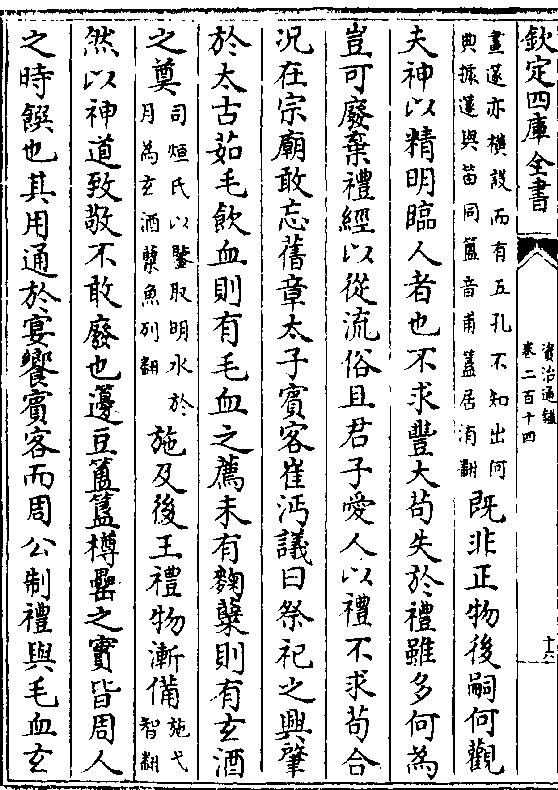 欽定四庫全書
資治通鑑
卷二百十四
十六
畫篴亦橫設而有五孔不知出何
典據篴與笛同簠音甫簋居洧翻
既非正物後嗣何觀
夫神以精明臨人者也不求豐大苟失於禮雖多何為
豈可廢棄禮經以從流俗且君子愛人以禮不求苟合
況在宗廟敢忘舊章太子賓客崔沔議曰祭祀之興肇
於太古茹毛飲血則有毛血之薦未有麴櫱則有玄酒
之奠
司烜氏以鑒取明水於
月為玄酒櫱魚列翻
施及後王禮物漸備
施弋
智翻
然以神道致敬不敢廢也籩豆簠簋樽罍之實皆周人
之時饌也其用通於宴饗賓客而周公制禮與毛血玄